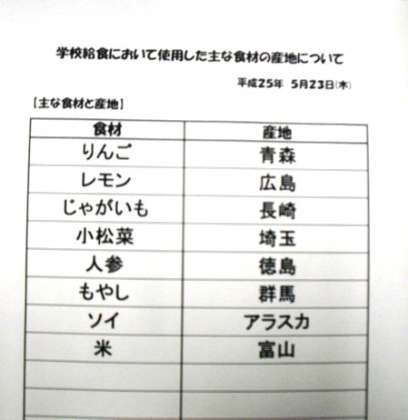 学校給食において使用した主な食材の産地について
平成25年 5月23日(木)
【主な食材と産地】
食材 産地
りんご 青森
レモン 広島
じゃがいも 長崎
小松菜 埼玉
人参 徳島
もやし 群馬
ソイ アラスカ
米 富山